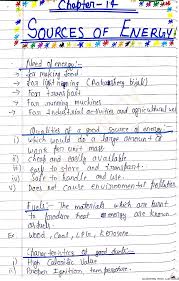 Chapter-14
SOURCES OF ENERGY
Need of energy:-
→ For making food
→ For lightening ( bijali)
→ For transport
→ For running machines
→ For industrial activities and agricultural
Qualities of a good source of energy:-
i) which would do a large amount of
work for unit mass
ii) cheap and easily available
iii) easy to store and transport.
iv) safe to handle and use.
v) Does not cause environmental pollution
Fuels:- The materials which are burnt
to produce heat energy are known
as fuels.
Ex wood, Coal, LPG, kerosene
Characteristics of good fuels:-
i) High Calorific Value
ii) Proper Ignition temperature.